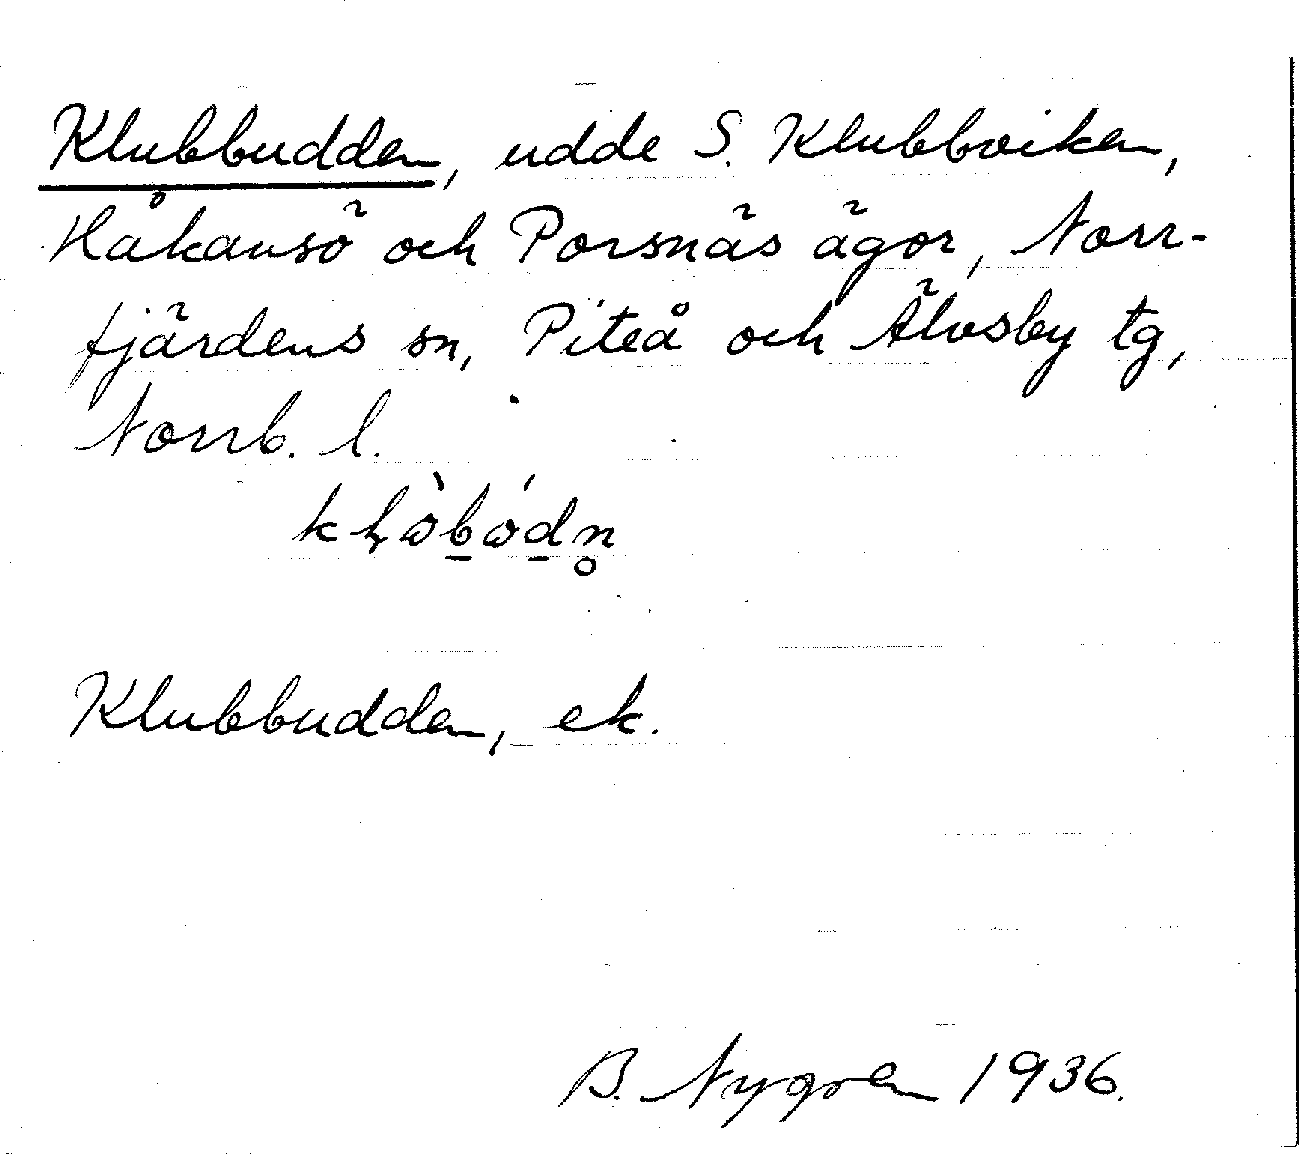 Klubbudden, udde S. Klubbviken,
Håkansö och Porsnäs ägor, Norr-
fjärdens sn, Piteå och Älvsby tg,
Norrb. l.
Klubbudden, ek.
B. Nygren 1936.